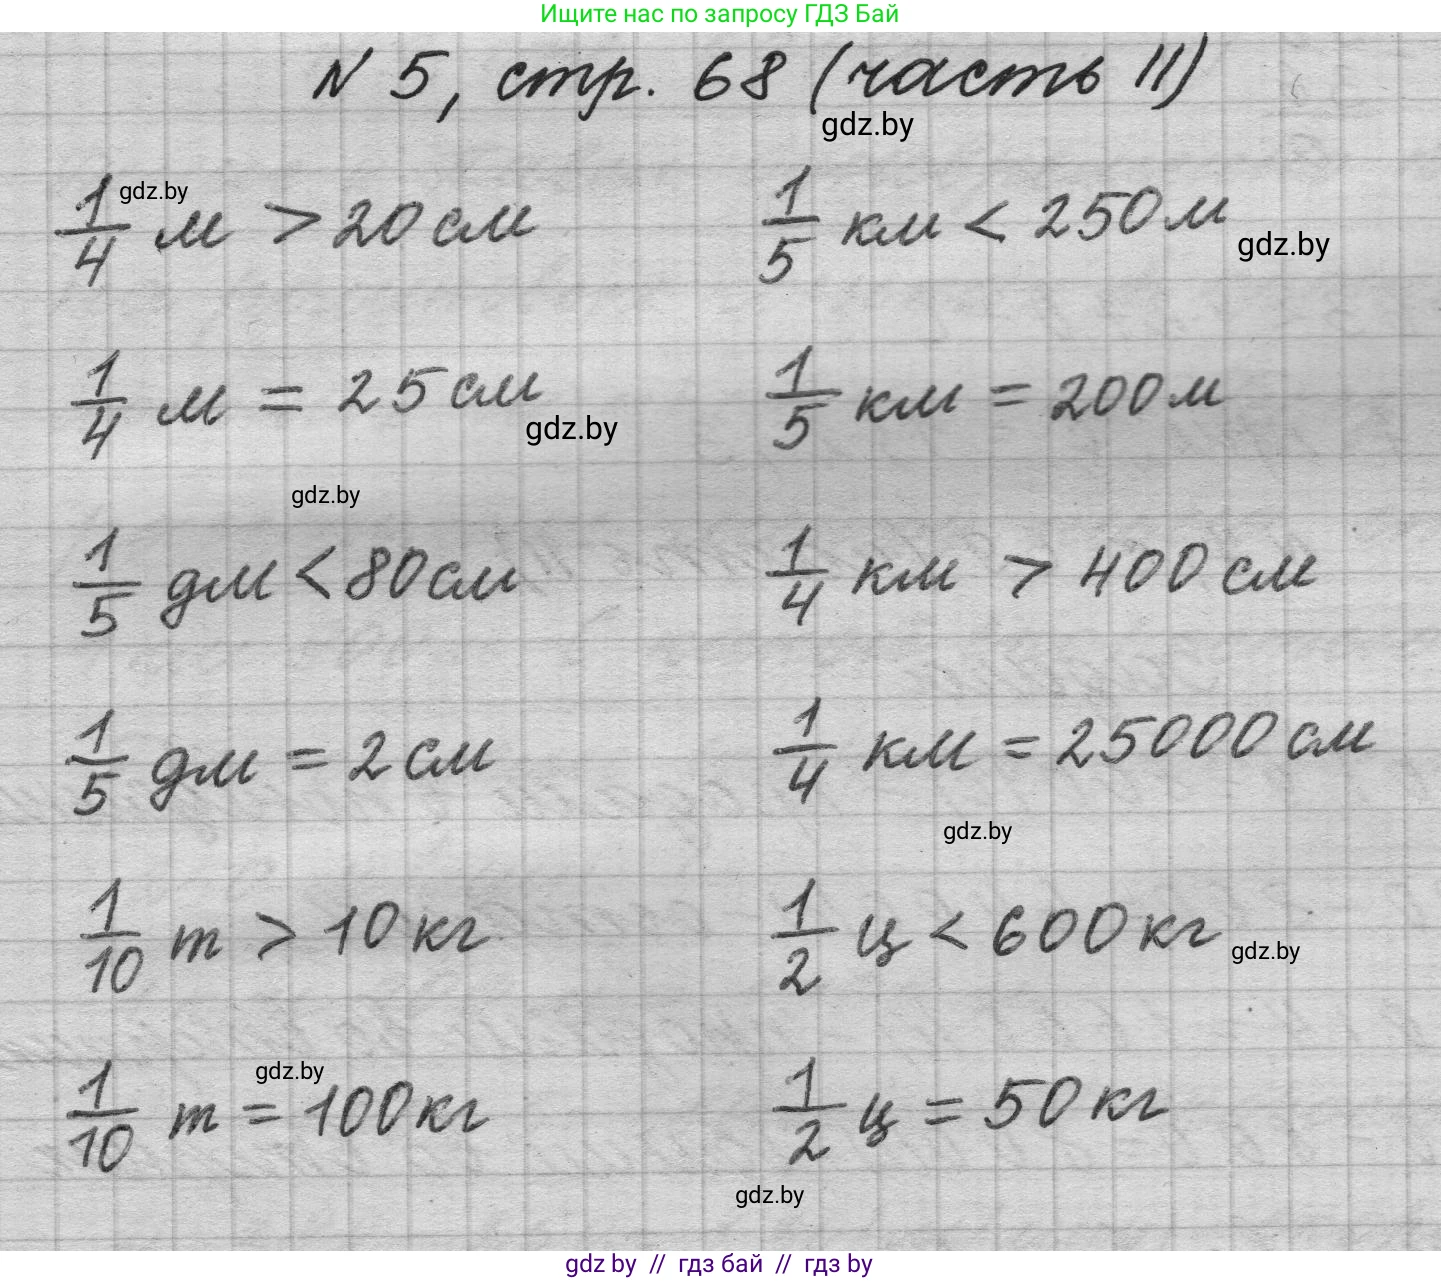 Ищите нас по запросу ГДЗ Бай
N 5, стр. 68 (часть II)
gdz.by
1/4 м > 20 см
gdz.by
1/5 км < 250 м
gdz.by
1/4 м = 25 см
gdz.by
1/5 км = 200 м
gdz.by
1/5 дм < 80 см
1/4 км > 400 см
1/5 дм = 2 см
1/4 км = 25000 см
gdz.by
1/10 т > 10 кг
1/2 ц < 600 кг
gdz.by
1/10 т = 100 кг
gdz.by
1/2 ц = 50 кг
gdz.by
gdz by // гдз бай // гдз by